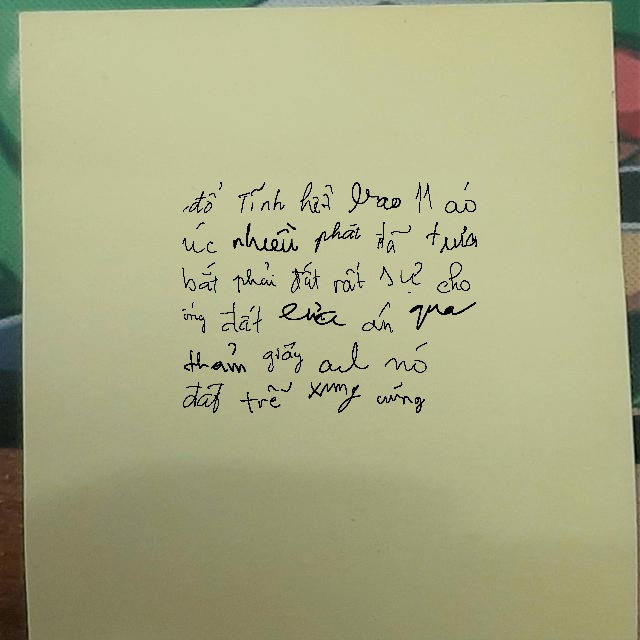 đổ Tĩnh hết trao 11 áo
úc nhiều phát tã
bát phải đất rất sự cho
ứng đất cửa án qua
thảm giấy ad nó
đất trễ xung cứng